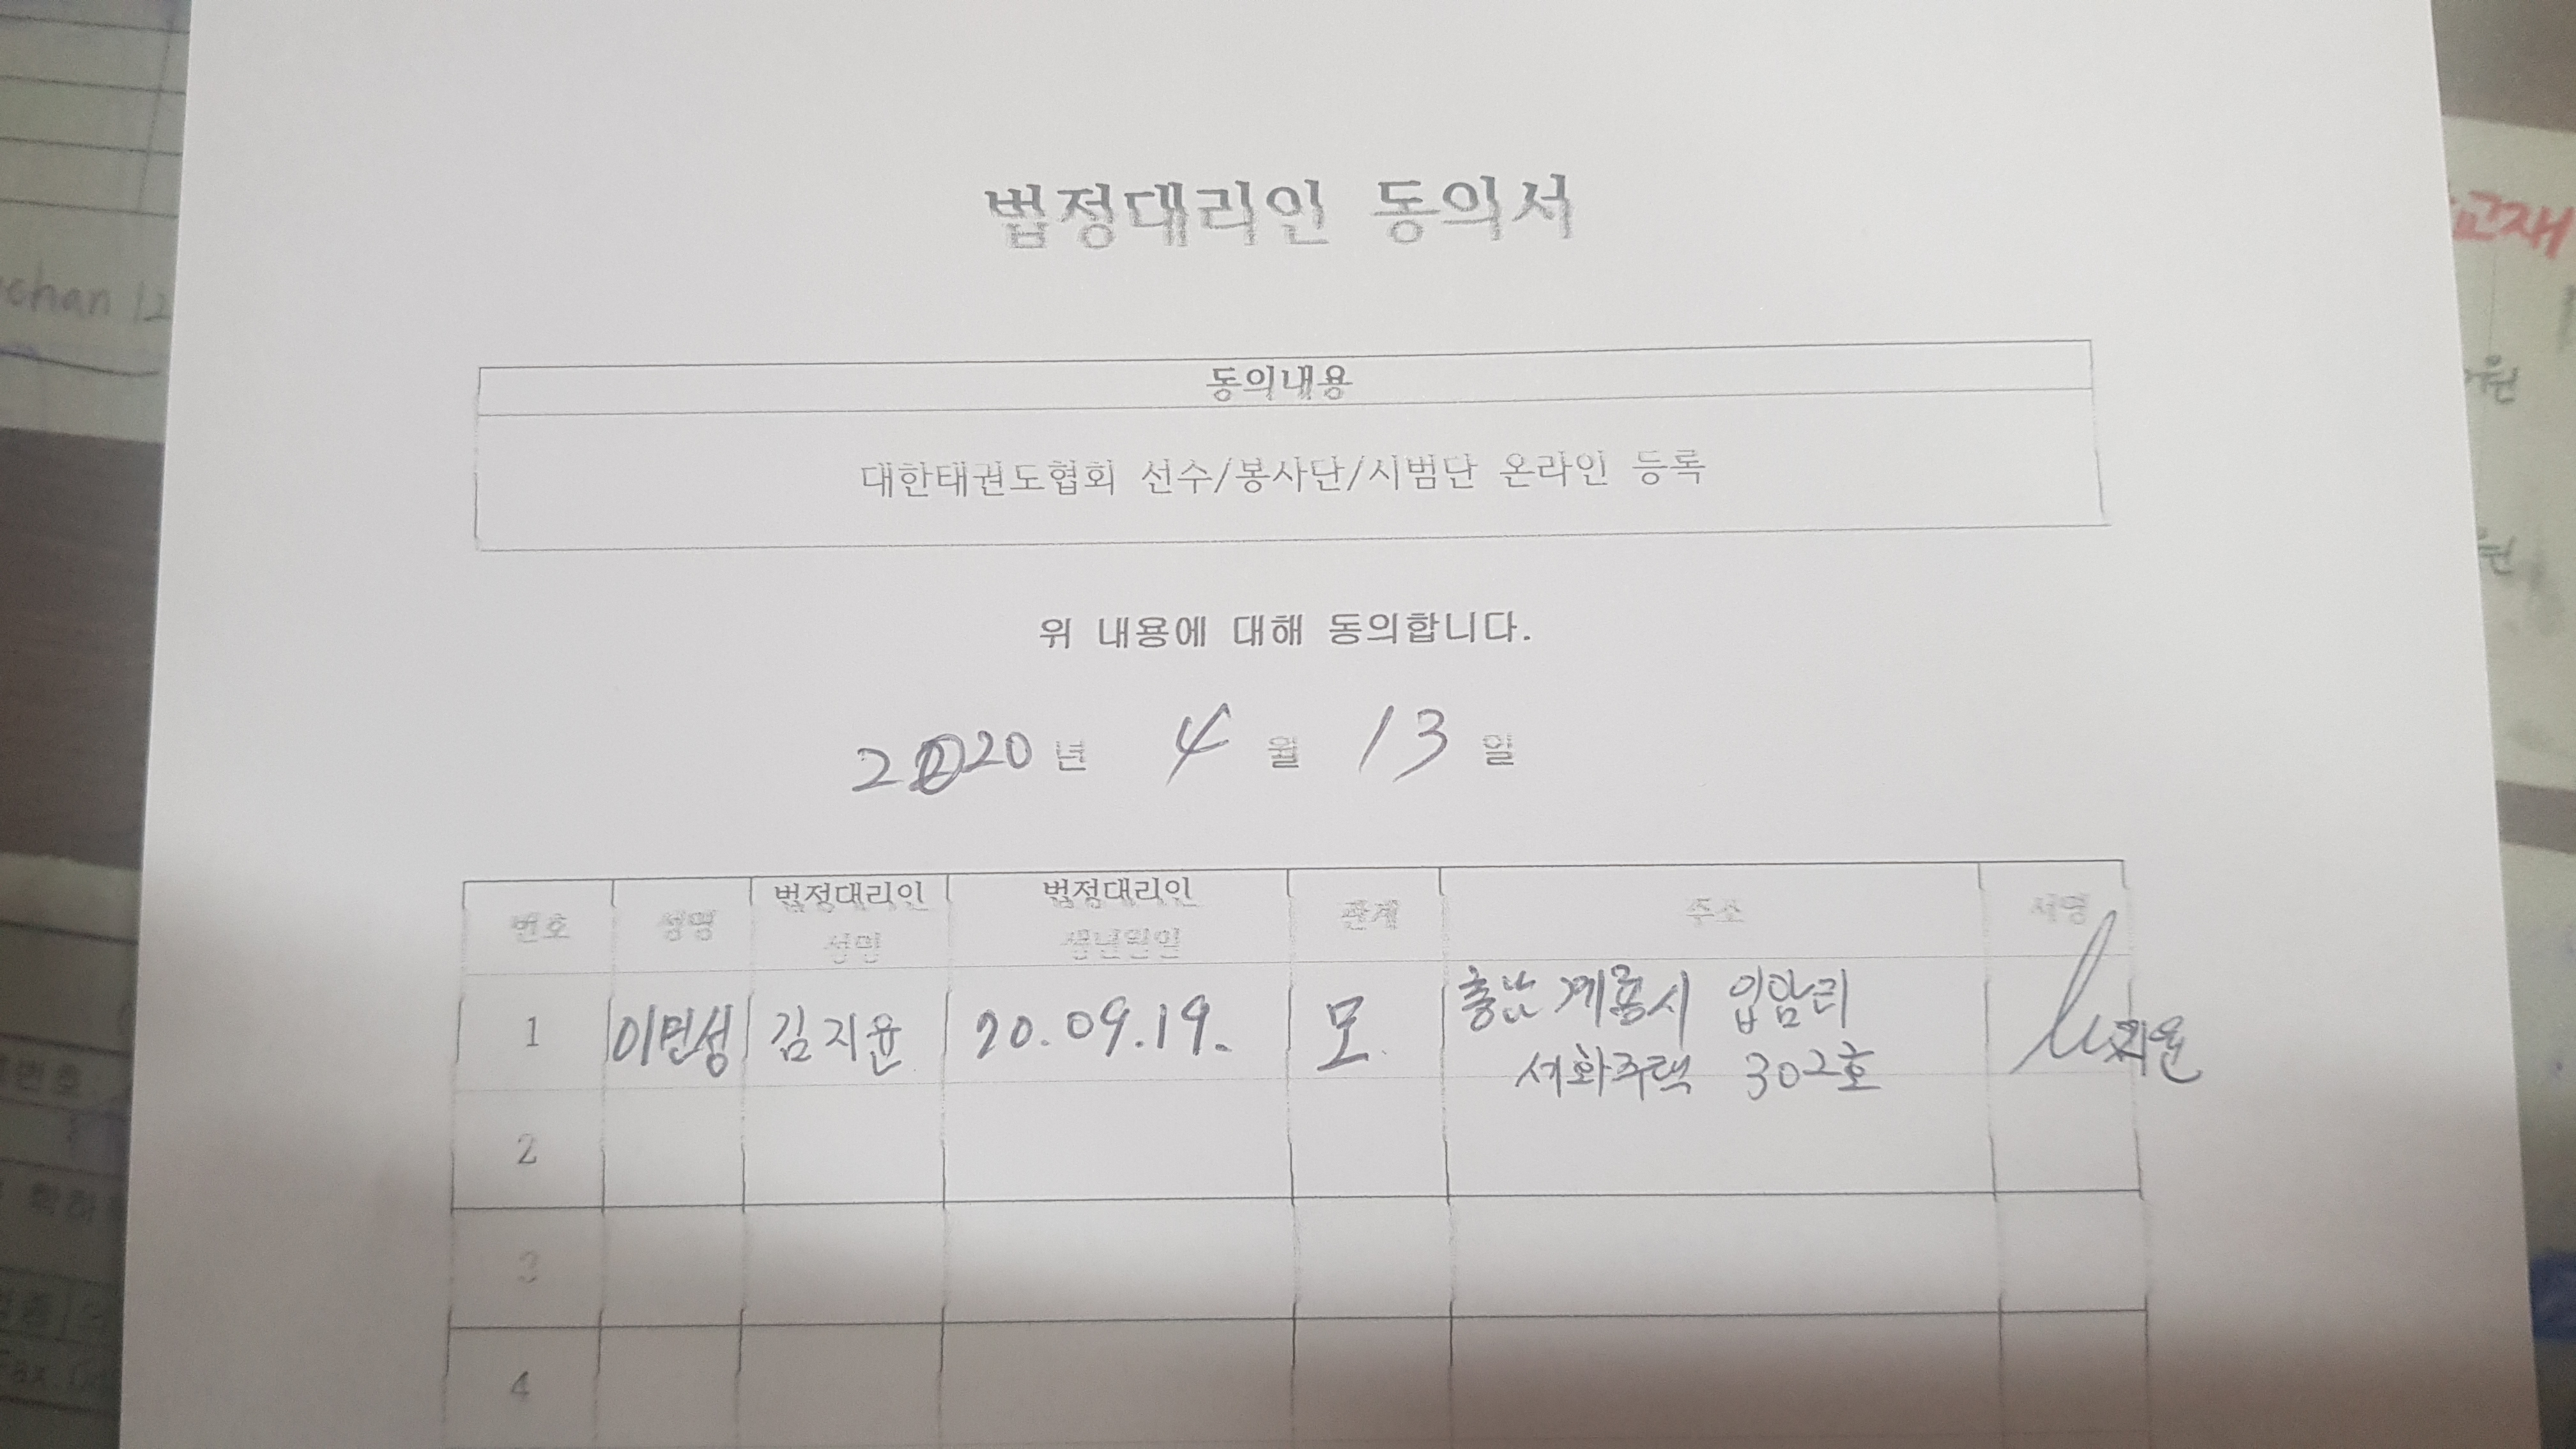 법정대리인 동의서
동의내용
대한태권도협회 선수/봉사단/시범단 온라인 등록
위 내용에 대해 동의합니다.
2020년 4월 13일
번호 성명 법정대리인 성명 법정대리인 생년월일 관계 주소 서명
1 이민성 김지윤 70.09.19. 모 충남 계룡시 입암리
세화주택 302호
지윤
2
3
4
chan 12
교재
원
원
번호
Fax